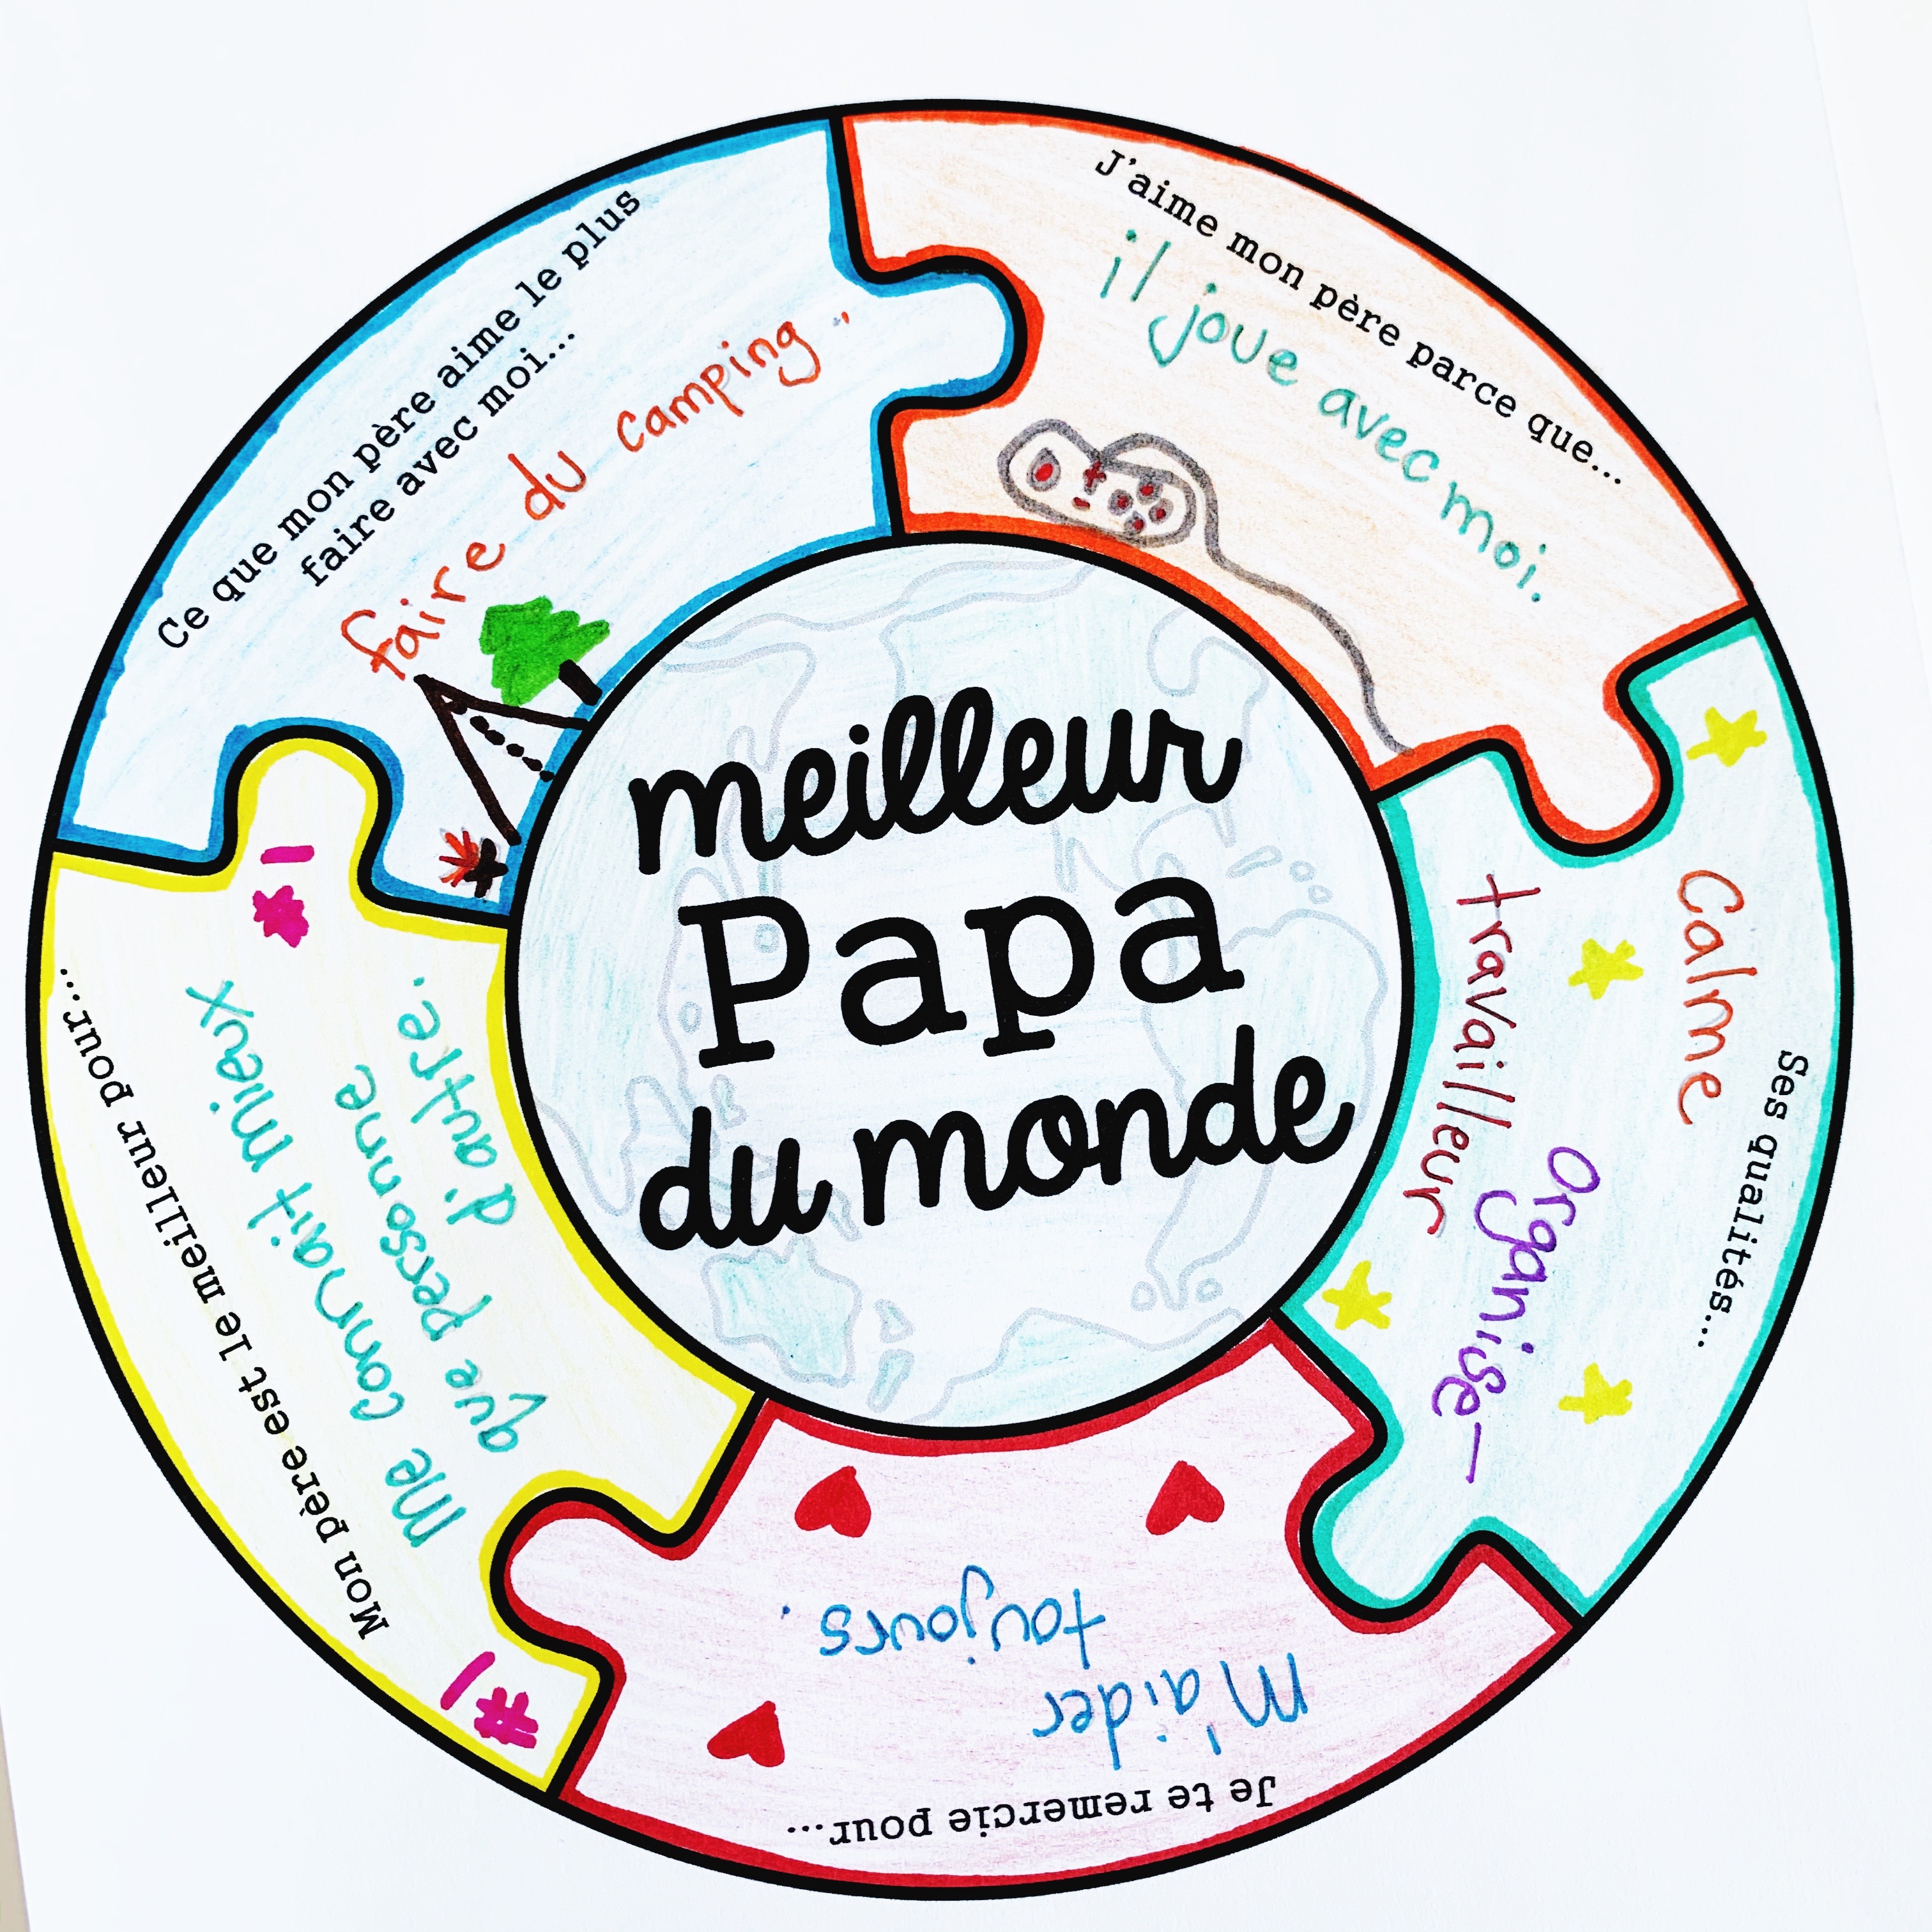 meilleur
Papa
du monde
Ce que mon père aime le plus
faire avec moi...
faire du camping
J'aime mon père parce que...
il joue avec moi.
Ses qualités...
Calme
travailleur
Organisé
Je te remercie pour...
M'aider
toujours.
Mon père est le meilleur pour...
me connait mieux
que personne
d'autre.
#1
#1